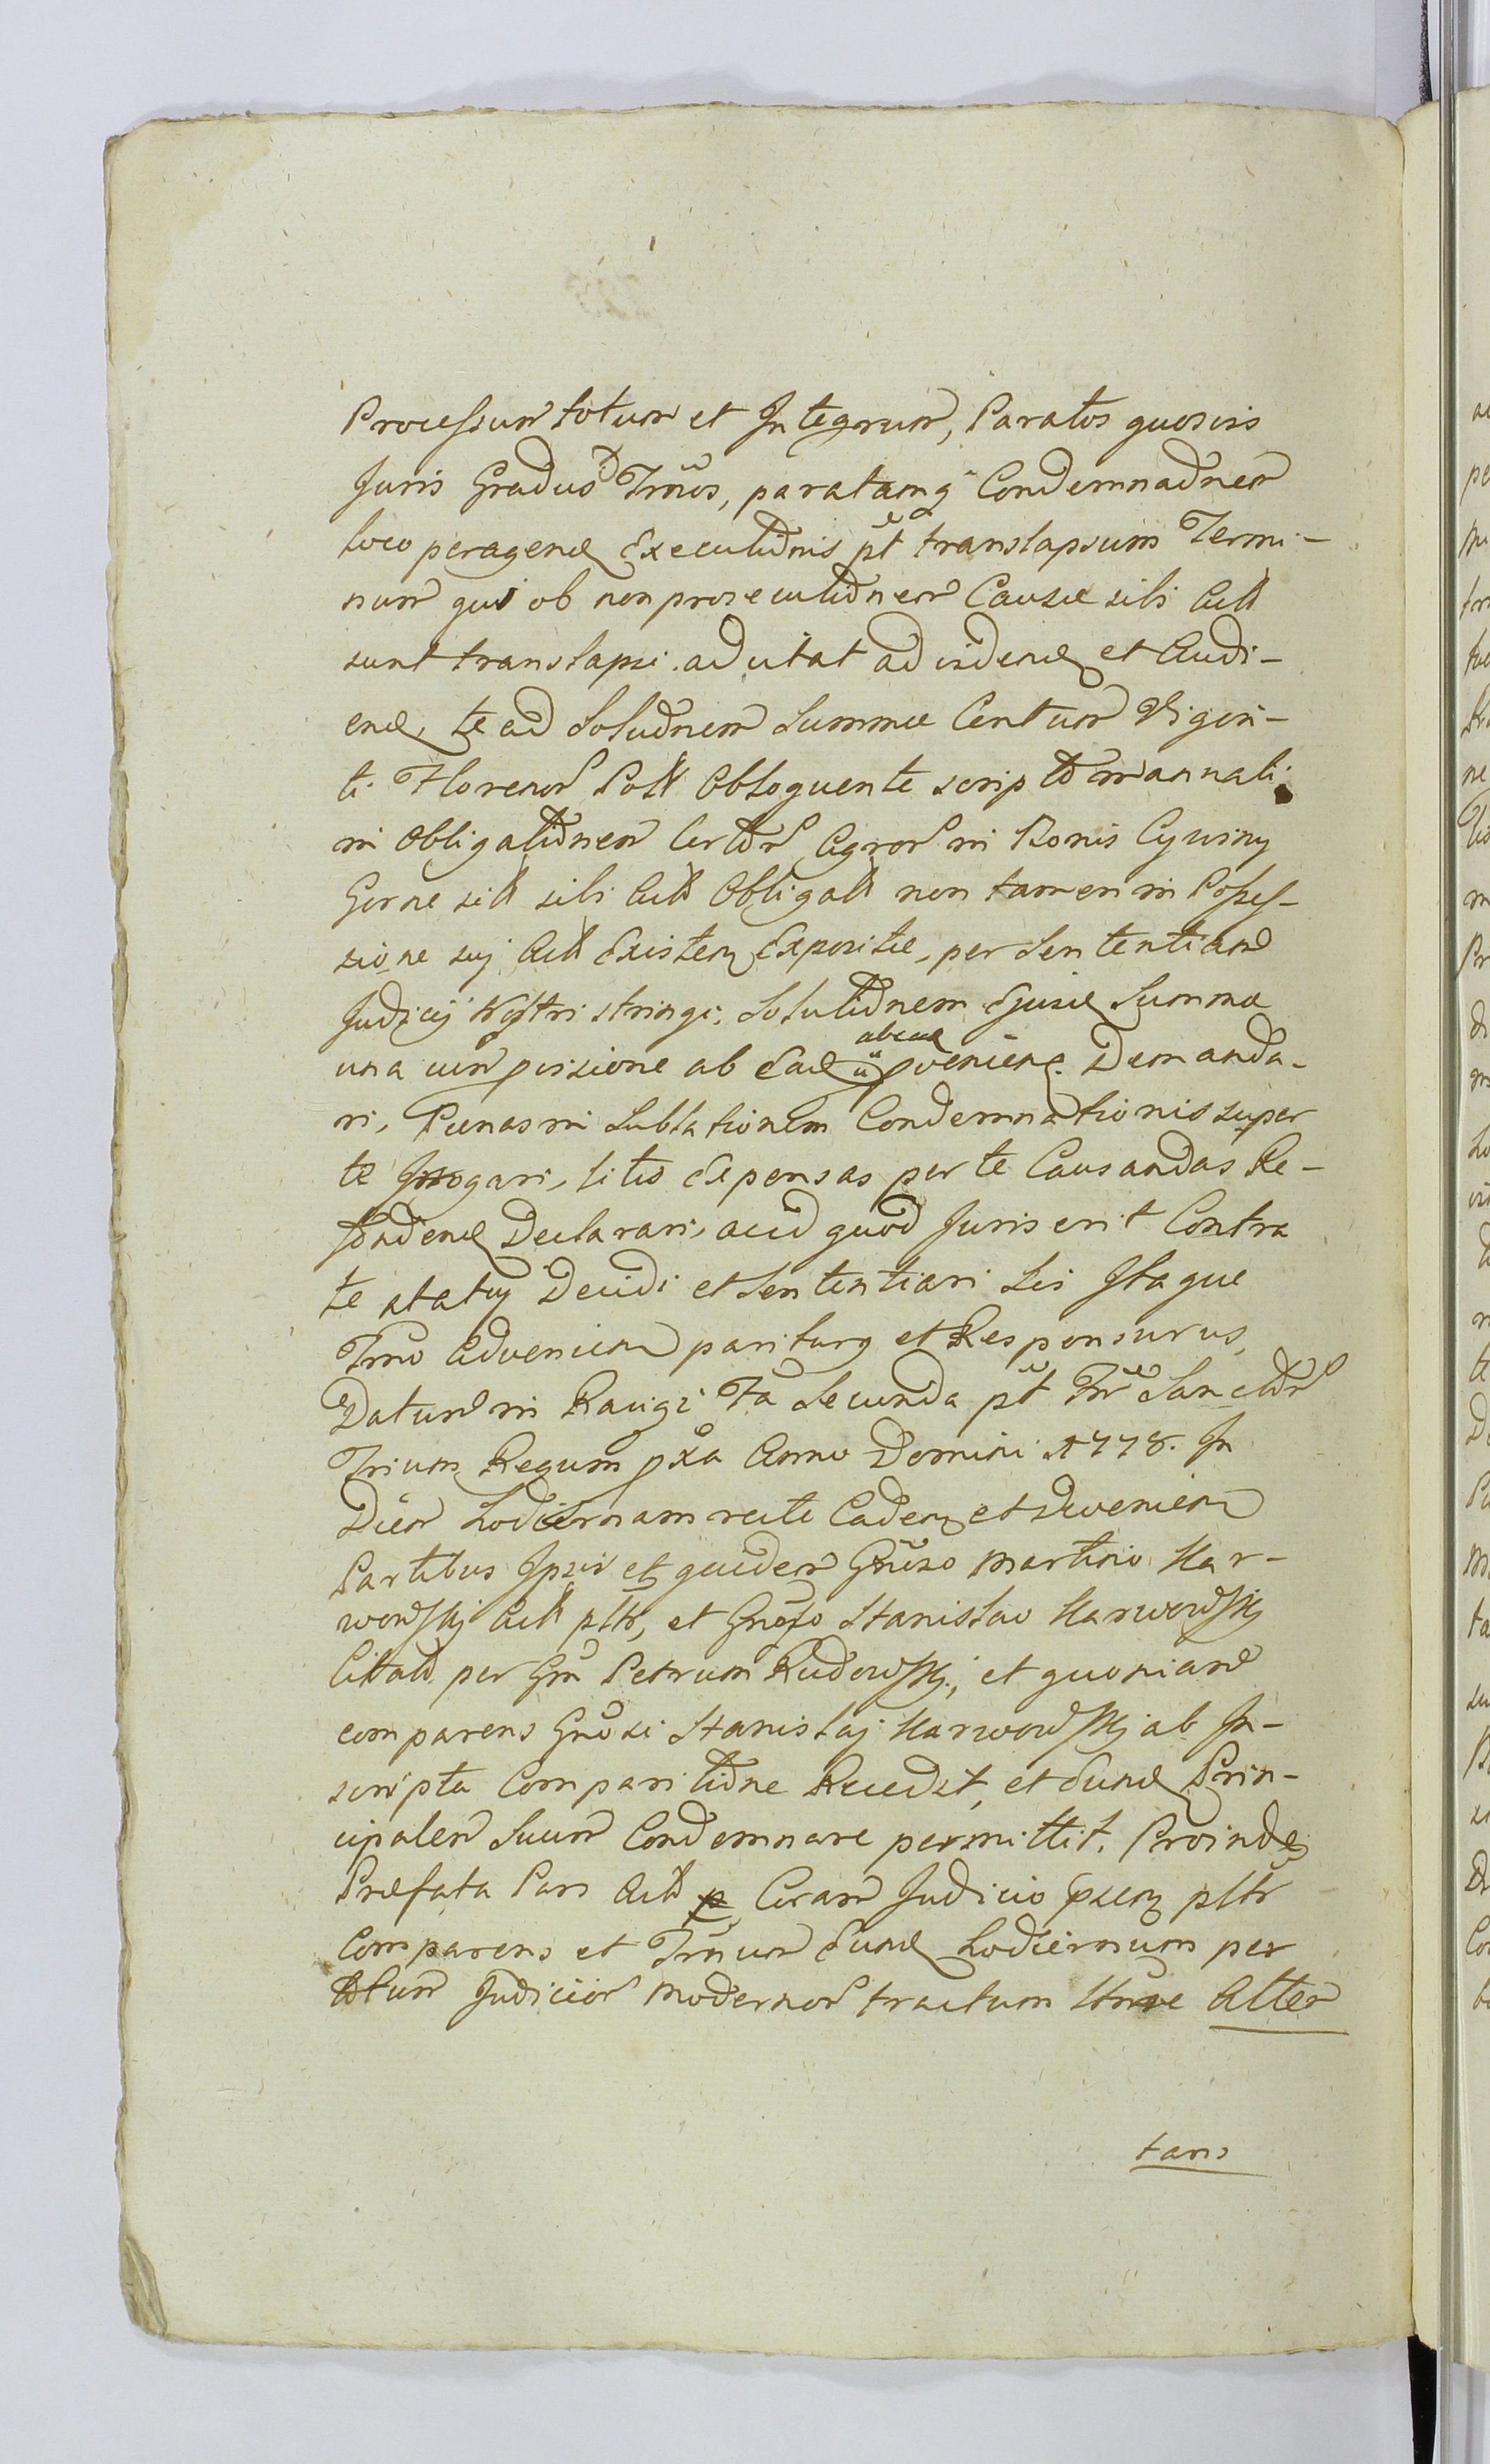 Processum totum et Integrum, Paratos quosvis
Juris Gradus Trnos, paratamq Condemnaõnem
loco peragend Executiõnis pt translapsum Termi-
num qui ob non prosecutiõnem Causæ sibi Act
sunt translapsi adcitat ad vidend et Audi-
end, te ad Soluõnem Summæ Centum Vigin-
ti Floren Poll Obloquente scripto mannali
in Obligatiõnem Certor Agror in Bonis Cywiny
Gorne sitt sibi Act Obligatt non tamen in Posses-
sione suj Act Existen Expositæ, per Sententiam
Judicÿ Nostri stringi, Solutiõnem Ejusd Summæ
una cum provisione ab Ead proveniend Demanda-
ri, Pœnas in Sublationem Condemnationis super
te Irrogari, litis Expensas per te Causandas Re-
fundend Declarari, acid quod Juris erit Contra
te statuj Decidi et Sententiari Sis Itaque
Trno Advenien pariturq et Responsurus,
Datum in Raugi Fa Secunda pt Fm Sanctor
Trium Regum pxa Anno Domini 1778. In
Diem hodiernam recte Caden et Devenien
Partibus Ipsis et quidem Gnoso Martino Kar-
wowskj Act pltr, et Gnoso Stanislao Karwowskj
Cittatt per Gm Petrum Rudowskj, et quoniam
comparens Gnosi Stanislaj Karwowskj ab In-
scripta Comparitiõne Recedit, et Eund Prin-
cipalem Suum Condemnare permittit. Proinde
Præfata Pars Act Coram Judicio pxen pltr
Comparens et Trnum Eund hodiernum per
totum Judicior modernor tractum Atter
tans